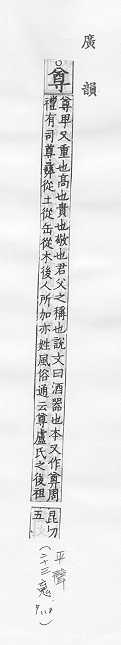 廣韻
尊
尊卑又重也高也貴也敬也君父之稱也說文曰酒器也本又作尊周
禮有司尊彝從土從缶從木後人所加亦姓風俗通云尊盧氏之後祖
昆切
五
平聲
(二十三魂 P.118)